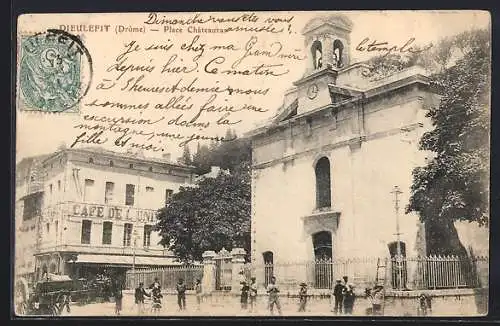 DIEULEFIT (Drôme) — Place Châteauras
Dimanche
vous
Je suis chez ma
amusie !!
depuis hier. Ce matin
à 8 heures et demie nous
sommes allées faire une
excursion dans la
montagne une jeune
fille et moi
le temple
CAFÉ DE L'UNION